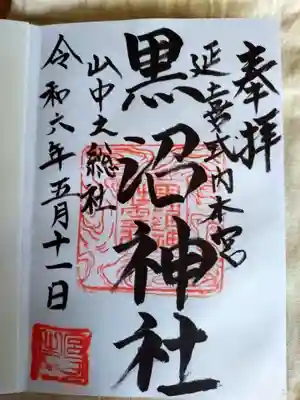 奉拝
延喜式内本宮
黒沼神社
山中大総社
令和六年五月十一日